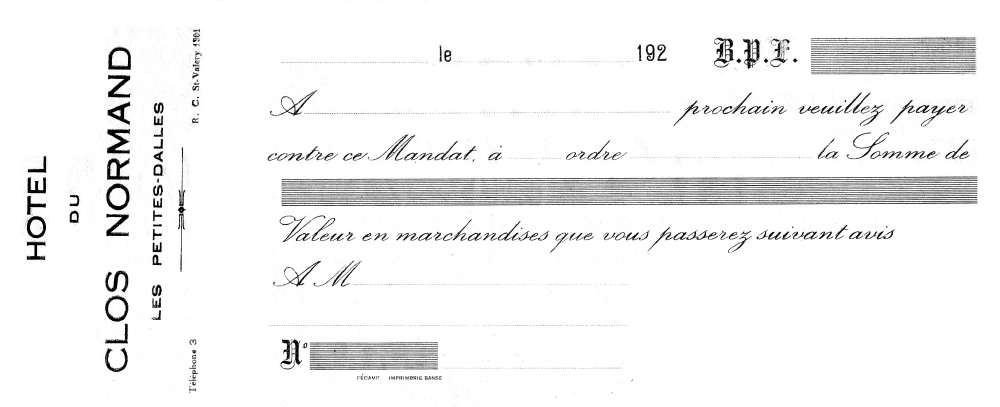 HOTEL
DU
CLOS NORMAND
LES PETITES-DALLES
Téléphone 3 R. C. St-Valery 1301
le 192 B.P.F.
A prochain veuillez payer
contre ce Mandat, à ordre la Somme de
Valeur en marchandises que vous passerez suivant avis
A M
N°
FÉCAMP. IMPRIMERIE BANSE